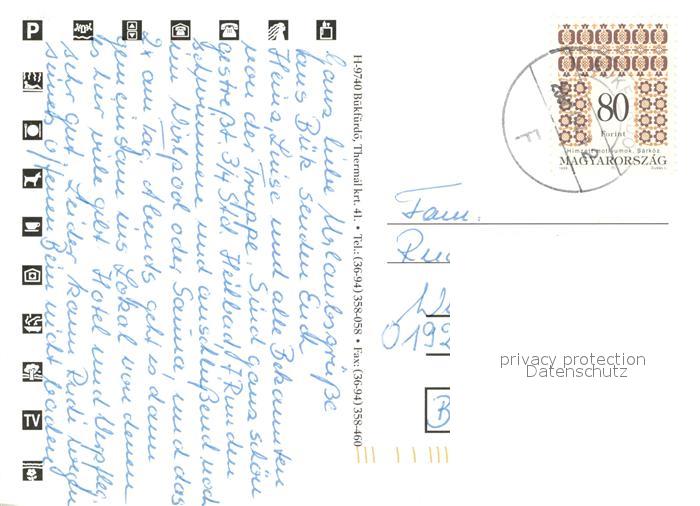 Ganz liebe Urlaubsgrüße
aus Bük senden Euch
Heinz, Luise und alle Bekannten
von der Truppe. Sind ganz schön
gestreßt. 3/4 Std. Heilbad, 7 Runden
schwimmen und anschließend noch
im Wirlpool oder Sauna, und das
2x am Tag. Abends geht es dann
gemeinsam ins Lokal von denen
es hier viele gibt. Hotel und Verpfleg.
sehr gut. Leider kann Rudi wegen
seines offenen Bein nicht baden
H-9740 Bükfürdő, Thermál krt. 41. • Tel.: (36-94) 358-058 • Fax: (36-94) 358-460
80
Forint
Hímzett motívumok. Sárköz
MAGYARORSZÁG
Fam.
019
B
privacy protection
Datenschutz
P
TV